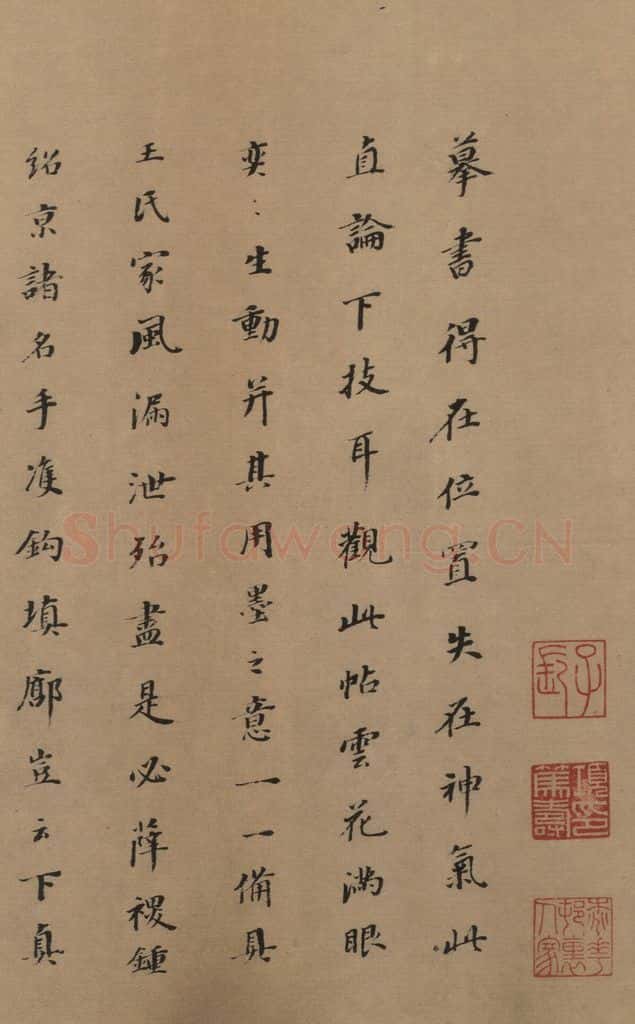 摹書得在位置失在神氣此
直論下技耳觀此帖雲花滿眼
奕〻生動并其用墨之意一一備具
王氏家風漏泄殆盡是必薛稷鍾
紹京諸名手雙鈎填廓豈云下真
子長
項壽
桃花邨裏人家
Shufawang.CN